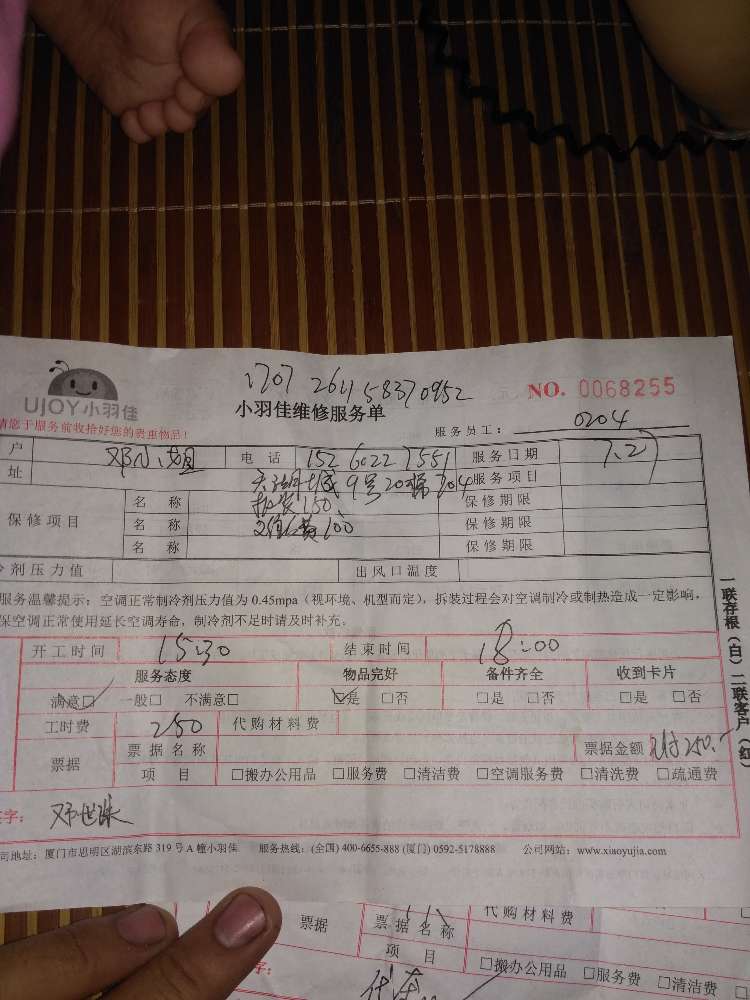 1707 2611 58370952
UJOY小羽佳
小羽佳维修服务单
NO. 0068255
请您于服务前收拾好您的贵重物品!
服务员工: 0204
户 邓小姐 电话 152 6022 7551 服务日期 7.27
址 9号 704 服务项目
保修项目 名称 拆装150 保修期限
名称 100 保修期限
名称 保修期限
冷剂压力值 出风口温度
服务温馨提示:空调正常制冷剂压力值为 0.45mpa(视环境、机型而定),拆装过程会对空调制冷或制热造成一定影响,
保空调正常使用延长空调寿命,制冷剂不足时请及时补充。
开工时间 15:30 结束时间 18:00
服务态度 物品完好 备件齐全 收到卡片
满意□ 一般□ 不满意□ □是 □否 □是 □否 □是 □否
工时费 250 代购材料费
票据 票据名称 票据金额 250.-
项目 □搬办公用品 □服务费 □清洁费 □空调服务费 □清洗费 □疏通费
签字: 邓世珠
司地址:厦门市思明区湖滨东路 319 号 A 幢小羽佳 服务热线:(全国) 400-6655-888 (厦门) 0592-5178888 公司网站:www.xiaoyujia.com
一联存根(白)二联客户(红
票据 票据名称 代购材料费
项目 □搬办公用品 □服务费 □清洁费
字: